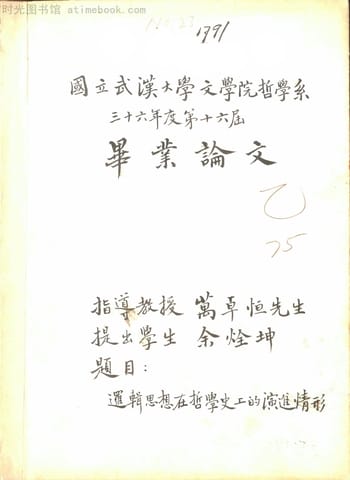 时光图书馆 - atimebook.com
1791
國立武漢大學文學院哲學系
三十六年度第十六屆
畢業論文
乙
75
指導教授 萬卓恒先生
提出學生 余烇坤
題目:
邏輯思想在哲學史上的演進情形